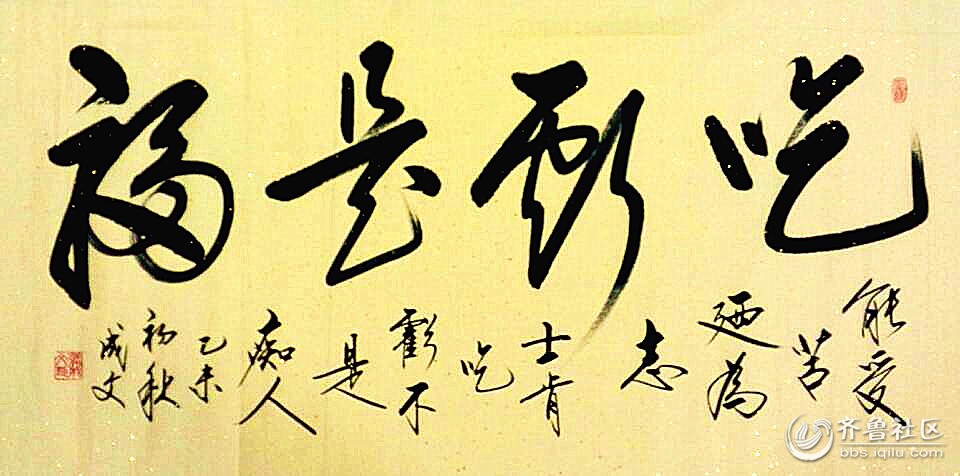 吃虧是福
能受
苦
廼為
志
士肯
吃
虧不
是
痴人
乙未
初秋
成文
齐鲁社区
bbs.iqilu.com